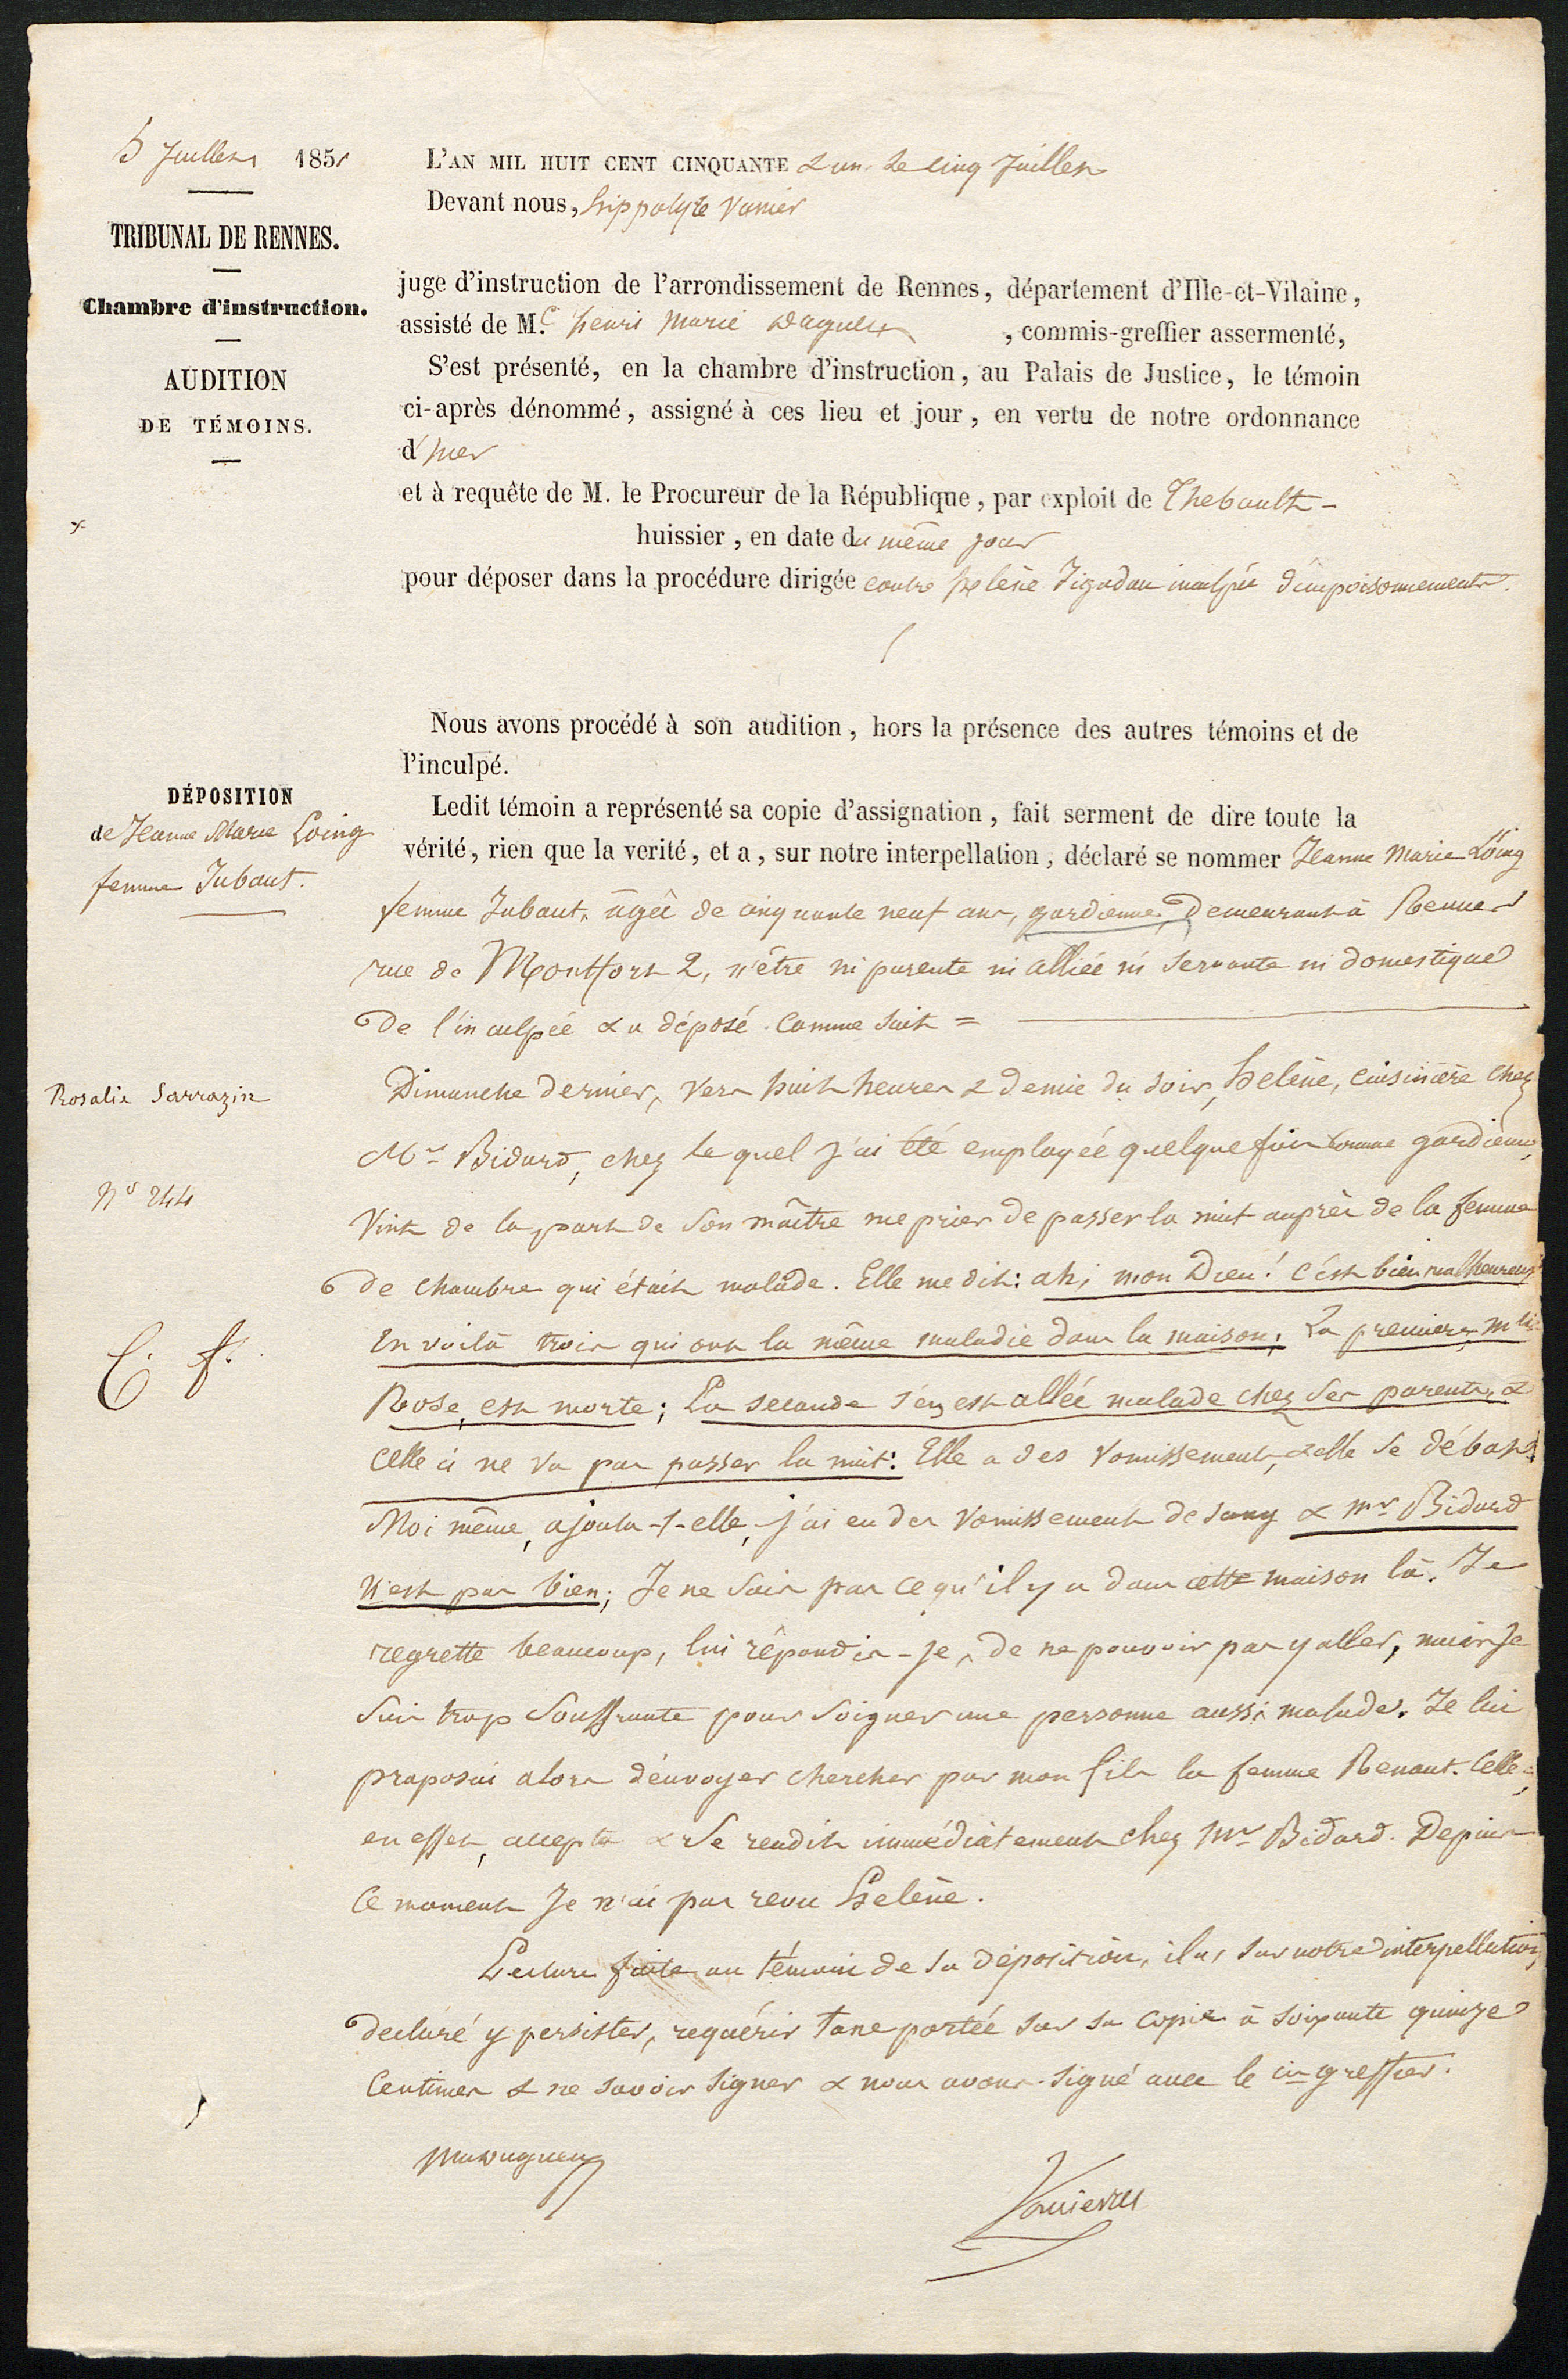 5 Juillet 1851
TRIBUNAL DE RENNES.
Chambre d'instruction.
AUDITION
DE TÉMOINS.
L'AN MIL HUIT CENT CINQUANTE & un le cinq Juillet
Devant nous, hippolyte Vanier
juge d'instruction de l'arrondissement de Rennes, département d'Ille-et-Vilaine,
assisté de M.e henri Marie Daguer, commis-greffier assermenté,
S'est présenté, en la chambre d'instruction, au Palais de Justice, le témoin
ci-après dénommé, assigné à ces lieu et jour, en vertu de notre ordonnance
d'hier
et à requête de M. le Procureur de la République, par exploit de Thebault-
huissier, en date du même jour
pour déposer dans la procédure dirigée contre helène Jégadau inculpée d'empoisonnements.
Nous avons procédé à son audition, hors la présence des autres témoins et de
l'inculpé.
DÉPOSITION
de Jeanne Marie Loing
femme Jubaut.
Ledit témoin a représenté sa copie d'assignation, fait serment de dire toute la
vérité, rien que la verité, et a, sur notre interpellation, déclaré se nommer Jeanne Marie Loing
femme Jubaut, âgée de cinquante neuf ans, gardienne, Demeurant à Rennes
rue de Montfort 2, n'être ni parente ni alliée ni servante ni domestique
De l'inculpée & a déposé comme suit =
Rosalie Sarrazin
Dimanche dernier, vers huit heures & demie du soir, helène, cuisinière chez
Mr Bidard, chez lequel j'ai été employée quelquefois comme gardienne,
No 244
Vint de la part de son maître me prier de passer la nuit auprès de la femme
de chambre qui était malade. Elle me dit: ah! mon Dieu! c'est bien malheureux
En voilà trois qui ont la même maladie dans la maison; La première, mlle
C. f.
Rose, est morte; La seconde s'en est allée malade chez ses parents, &
celle ci ne va pas passer la nuit. Elle a des vomissements, & elle se débat.
Moi même, ajouta-t-elle, j'ai eu des vomissements de sang & mr Bidard
n'est pas bien; Je ne sais pas ce qu'il y a dans cette maison là. Je
regrette beaucoup, lui répondis-je, de ne pouvoir pas y aller, mais je
suis trop souffrante pour soigner une personne aussi malade. Je lui
proposai alors d'envoyer chercher par mon fils la femme Renaut. Celle ci,
en effet, accepta & se rendit immédiatement chez mr Bidard. Depuis
ce moment Je n'ai pas revu helène.
Lecture faite au témoin de sa déposition, il a, sur notre interpellation,
declaré y persister, requérir taxe portée sur sa copie à soixante quinze
centimes & ne savoir signer & nous avons signé avec le cis greffier.